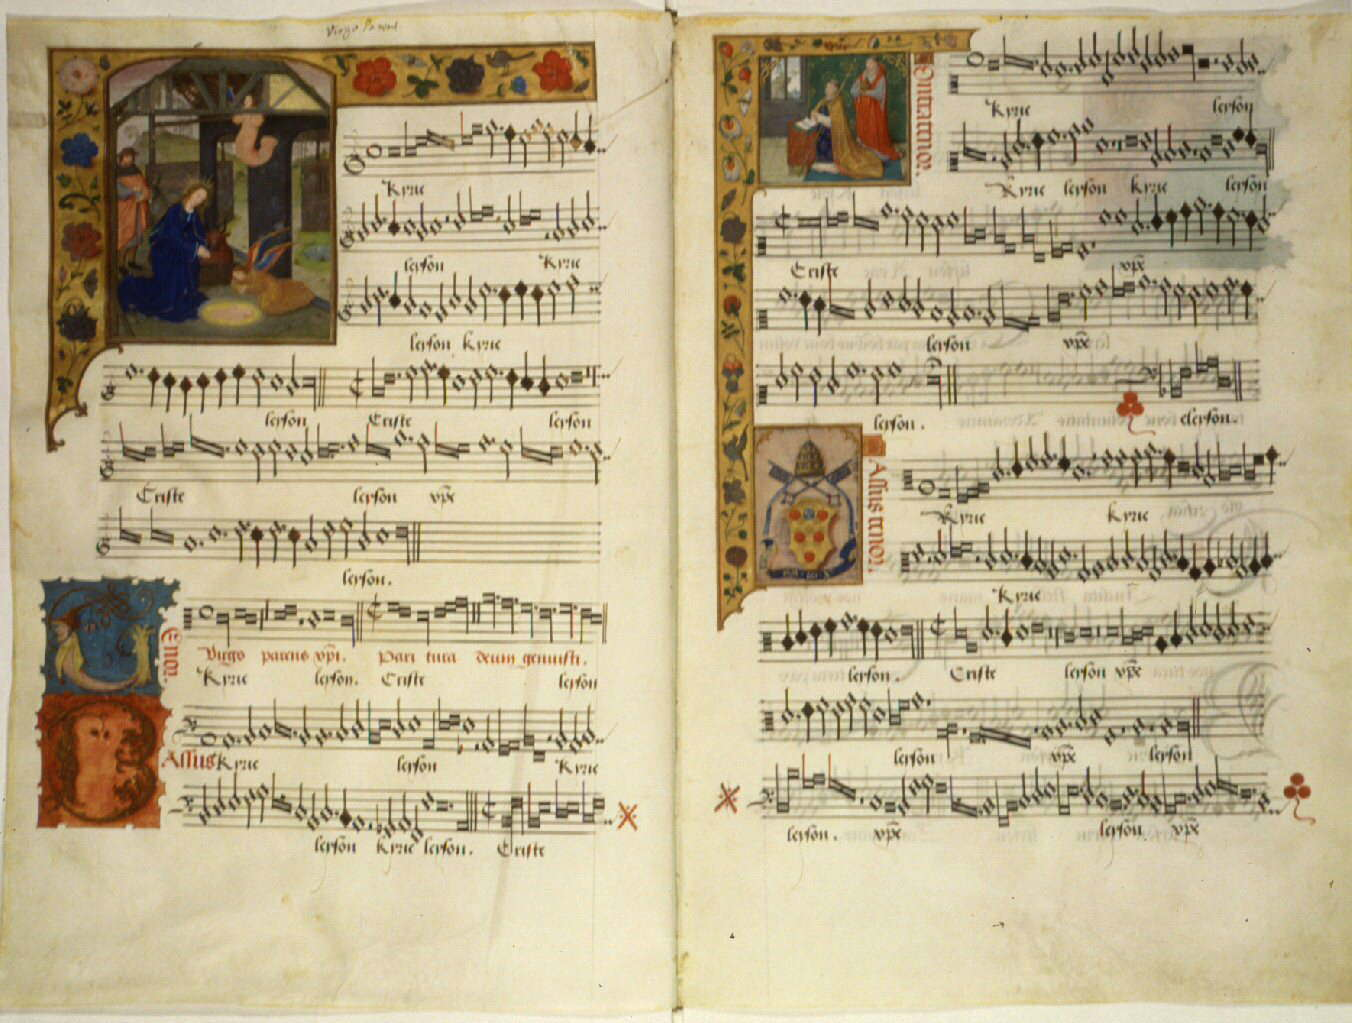 Virgo parens
Kyrie
leyson Kyrie
leyson kyrie
leyson Criste leyson
Criste leyson xpe
leyson.
Enor
Virgo parens xpi. Pari tura deum genuisti.
Kyrie leyson. Criste leyson
Assus Kyrie leyson Kyrie
leyson kyrie leyson. Criste
Kyrie leyson
Kyrie leyson kyrie leyson
Criste xpe
leyson xpe
leyson. eleyson.
Assus tenor.
Kyrie kyrie
Kyrie
leyson. Criste leyson xpe
leyson xpe leyson
leyson. xpe leyson. xpe